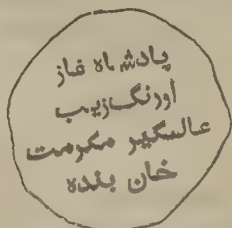 پادشاه غاز
اورنگ‌زیب
عالمگیر مکرمت
خان بنده